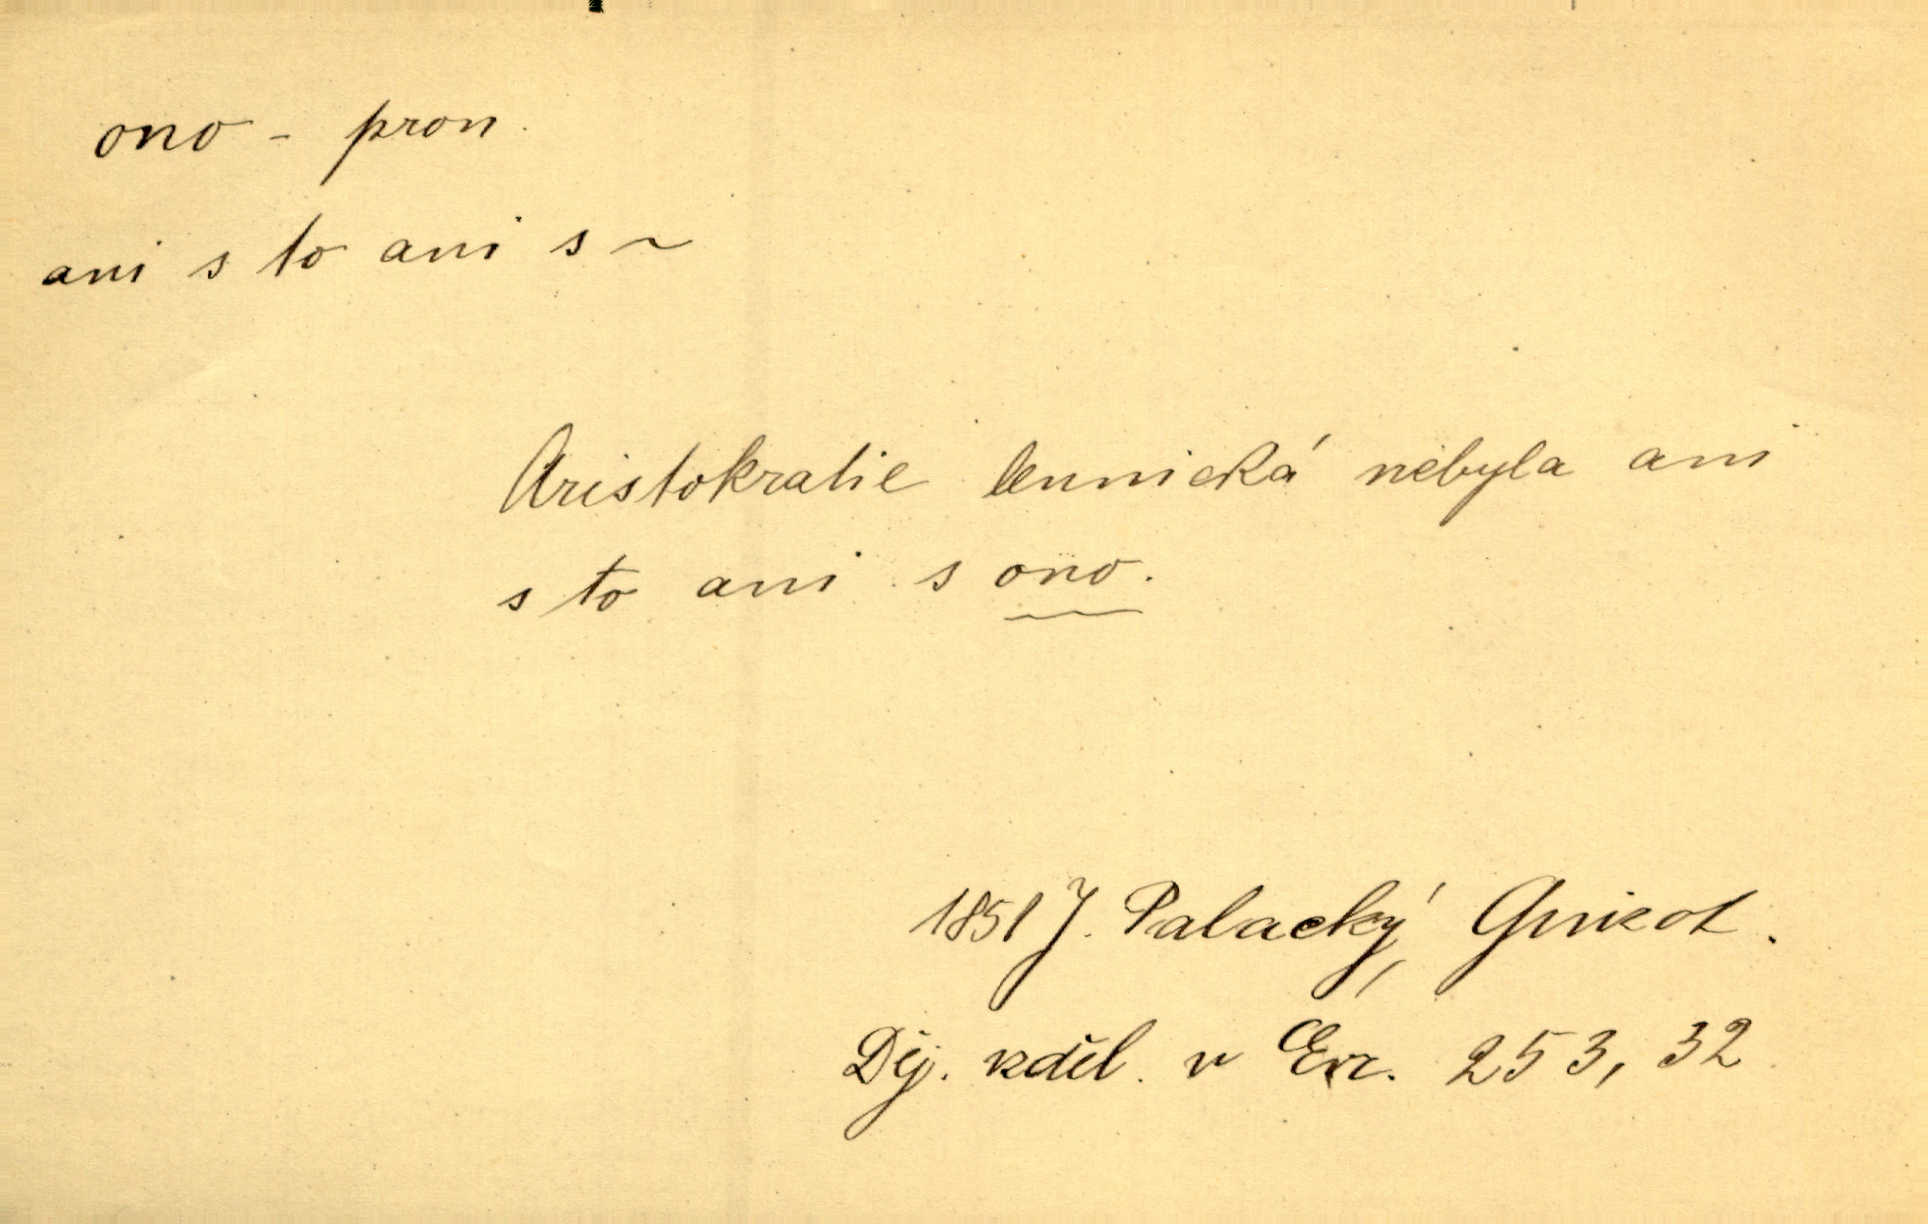 ono - pron.
ani s to ani s ~
Aristokratie lennická nebyla ani
s to ani s ono.
1851 J. Palacký, Guizot.
Děj. vzděl. v Evr. 253, 32